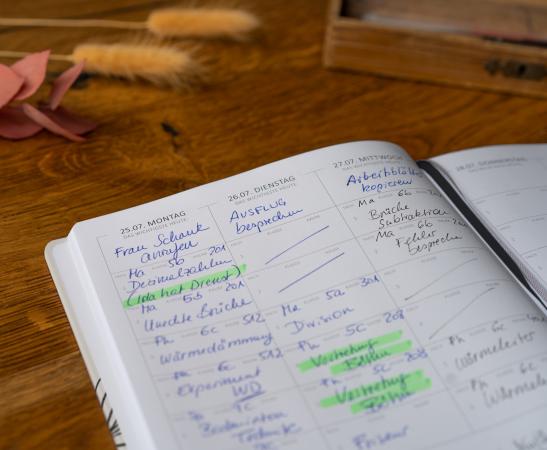 25.07. MONTAG
DAS WICHTIGSTE HEUTE:
Frau Schank
anrufen
Ma 5b 201
Dezimalzahlen
(Ida hat Dienst)
Ma 5b 201
Unechte Brüche
Ph 6c 512
Wärmedämmung
Ph 6c 512
Experiment
WD
26.07. DIENSTAG
DAS WICHTIGSTE HEUTE:
AUSFLUG
besprechen
Ma 5a 301
Division
Ph 5c 208
Vertretung
Ph 5c 208
Vertretung
27.07. MITTWOCH
DAS WICHTIGSTE HEUTE:
Arbeitsblätter
kopieren
Ma 6b
Brüche
Subtraktion
Ma 6b
Fehler
besprechen
Ph 6c
Wärmeleiter
Ph 6c
28.07. DONNERSTAG